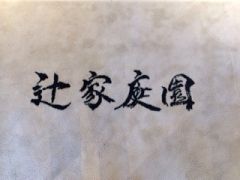 辻家庭園